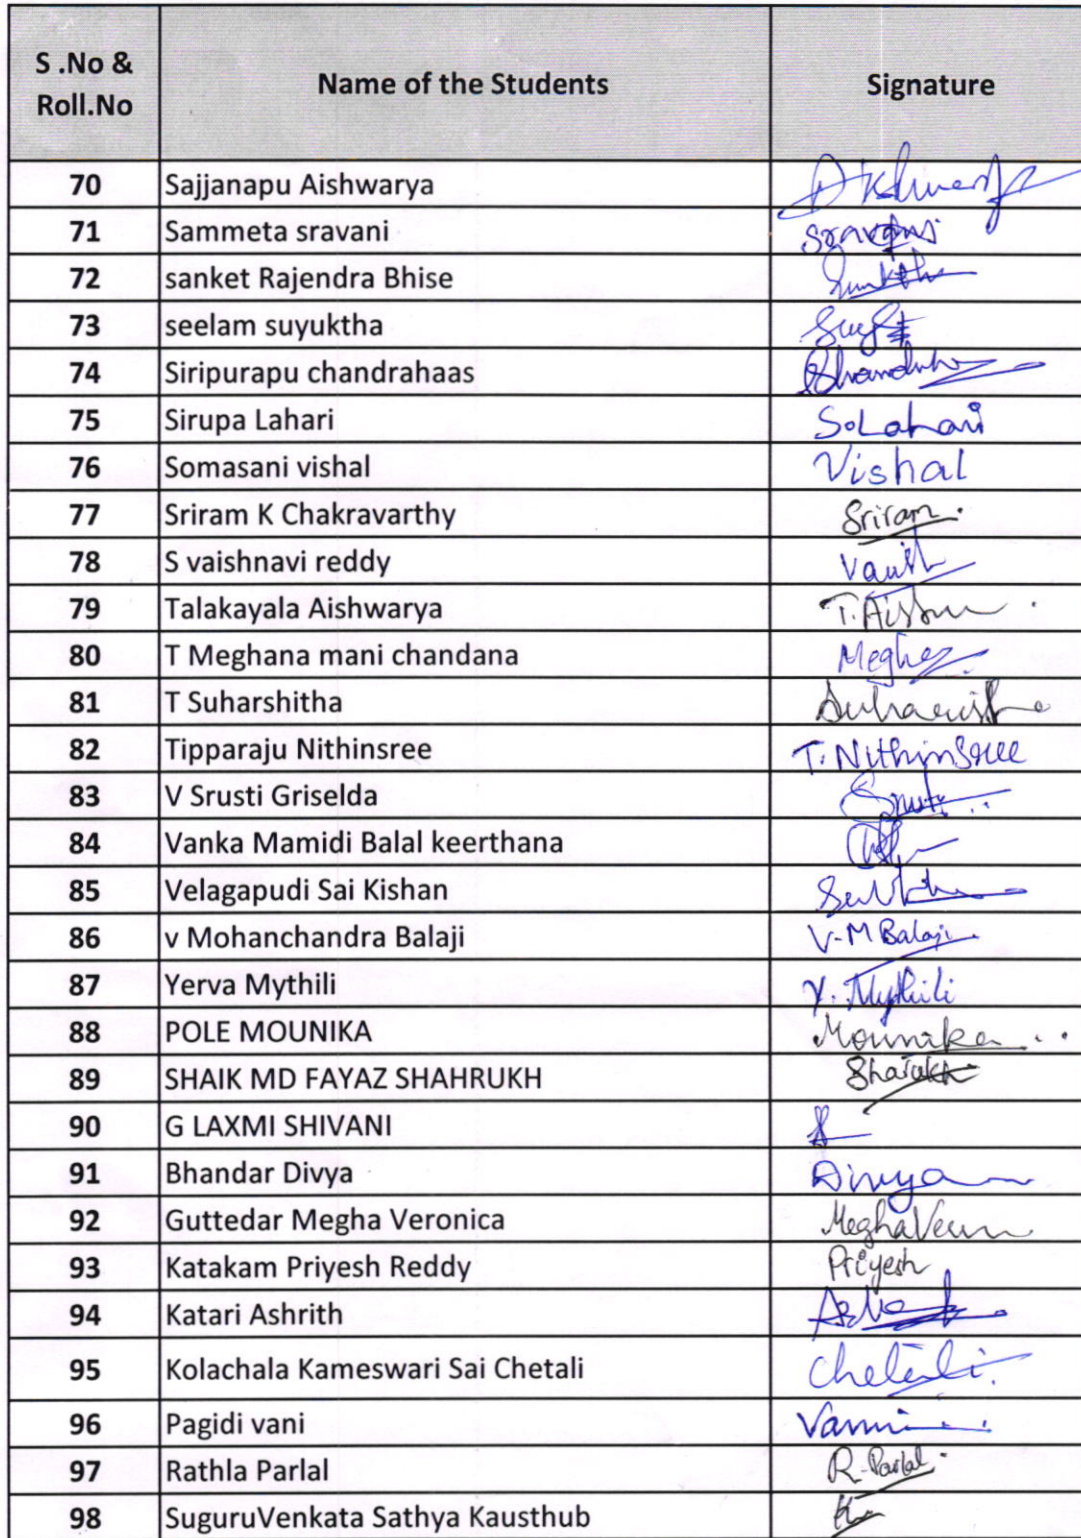 S .No & Roll.No Name of the Students Signature
70 Sajjanapu Aishwarya
71 Sammeta sravani sravani
72 sanket Rajendra Bhise
73 seelam suyuktha
74 Siripurapu chandrahaas
75 Sirupa Lahari S.Lahari
76 Somasani vishal Vishal
77 Sriram K Chakravarthy Sriram.
78 S vaishnavi reddy
79 Talakayala Aishwarya
80 T Meghana mani chandana
81 T Suharshitha
82 Tipparaju Nithinsree T. Nithinsree
83 V Srusti Griselda
84 Vanka Mamidi Balal keerthana
85 Velagapudi Sai Kishan
86 v Mohanchandra Balaji V-M Balaji.
87 Yerva Mythili Y. Mythili
88 POLE MOUNIKA Mounika
89 SHAIK MD FAYAZ SHAHRUKH
90 G LAXMI SHIVANI
91 Bhandar Divya Divya
92 Guttedar Megha Veronica
93 Katakam Priyesh Reddy Priyesh
94 Katari Ashrith
95 Kolachala Kameswari Sai Chetali Chetali.
96 Pagidi vani
97 Rathla Parlal R-Parlal.
98 SuguruVenkata Sathya Kausthub